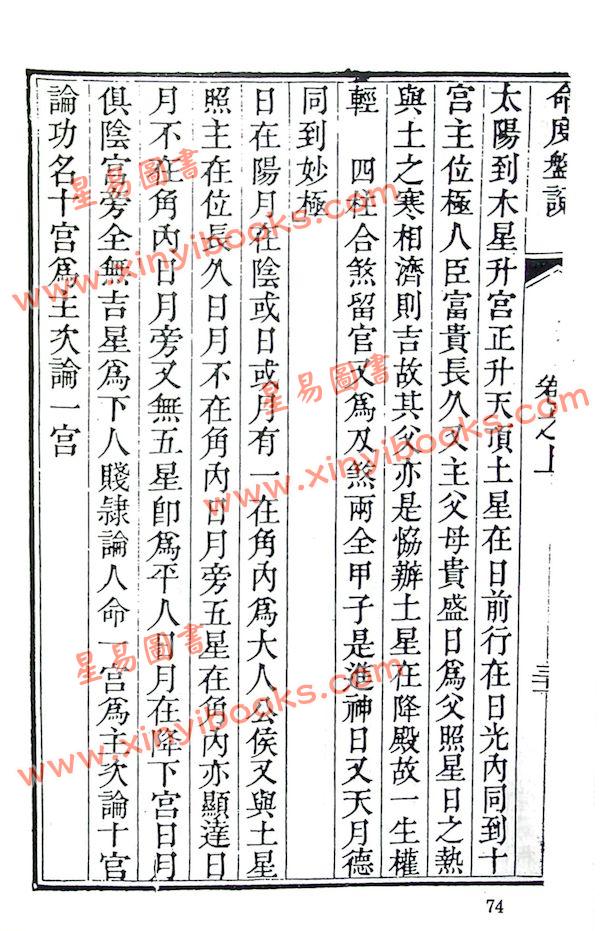 命度盤說
卷之上
太陽到木星升宮正升天頂土星在日前行在日光內同到十
宮主位極人臣富貴長久又主父母貴盛日為父照星日之熱
與土之寒相濟則吉故其父亦是恊辦土星在降殿故一生權
輕　四柱合煞留官又為刄煞兩全甲子是進神日又天月德
同到妙極
日在陽月在陰或日或月有一在角內為大人公侯又與土星
照主在位長久日月不在角內日月旁五星在角內亦顯達日
月不在角內日月旁又無五星卽為平人日月在降下宮日月
俱陰宮旁全無吉星為下人賤隷論人命一宮為主次論十宮
論功名十宮為主次論一宮
74
星易圖書
www.xinyibooks.com
星易圖書
www.xinyibooks.com
星易圖書
www.xinyibooks.com